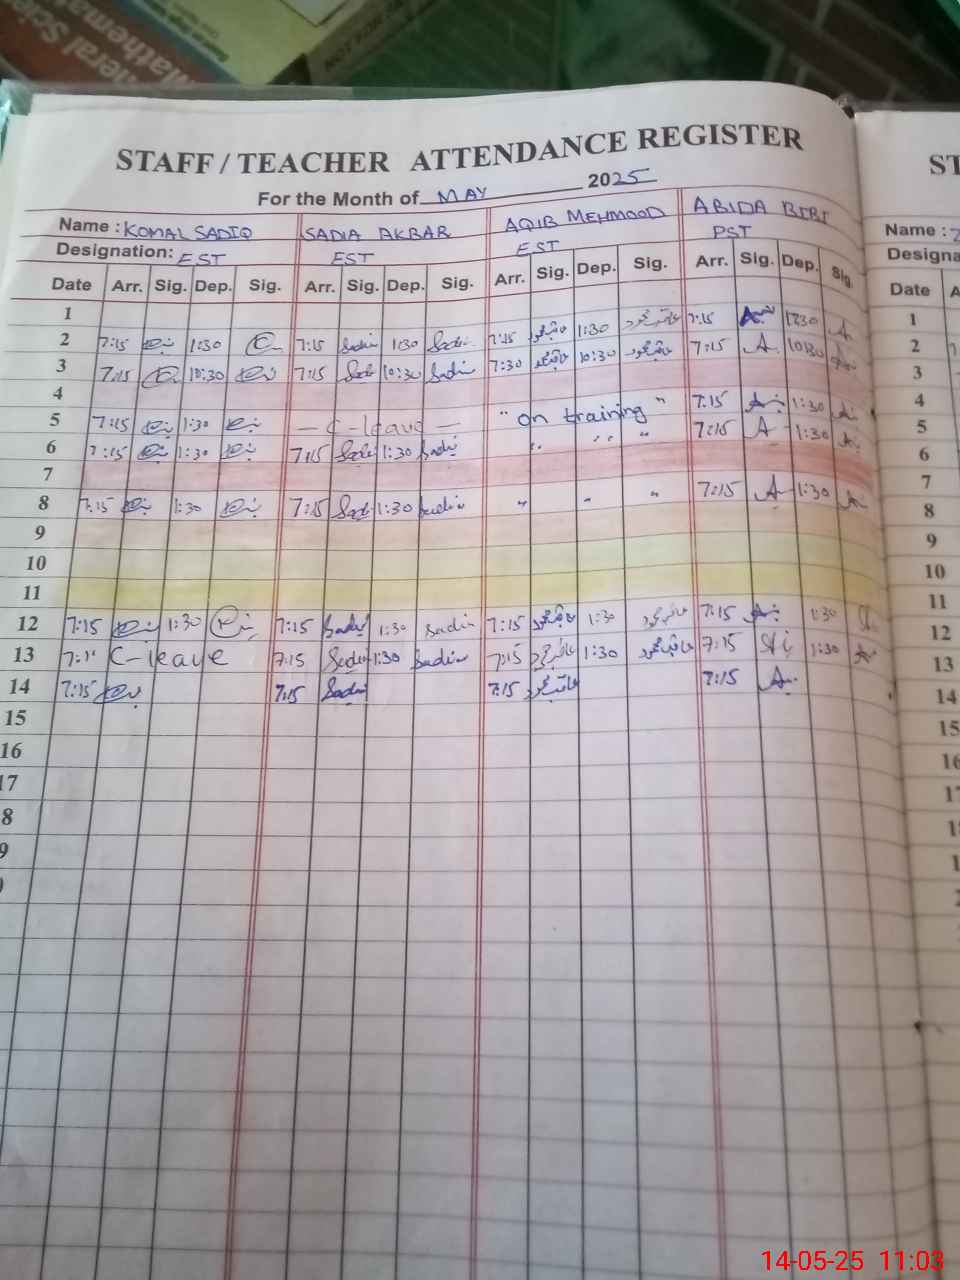 General Science
Mathema
STAFF / TEACHER ATTENDANCE REGISTER
For the Month of MAY 2025
Name : KOMAL SADIQ SADIA AKBAR AQIB MEHMOOD ABIDA BIBI
Designation: EST EST EST PST
Date Arr. Sig. Dep. Sig. Arr. Sig. Dep. Sig. Arr. Sig. Dep. Sig. Arr. Sig. Dep. Sig.
1
2 7:15 1:30 7:15 Sadia 1:30 Sadia 7:15 عاقب محمود 1:30 عاقب محمود 7:15 1:30
3 7:15 10:30 7:15 Sadia 10:30 Sadia 7:30 عاقب محمود 10:30 عاقب محمود 7:15 10:30
4
5 7:15 1:30 — C-leave — " on training " 7:15 1:30
6 7:15 1:30 7:15 Sadia 1:30 Sadia " " " 7:15 1:30
7
8 7:15 1:30 7:15 Sadia 1:30 Sadia " " " 7:15 1:30
9
10
11
12 7:15 1:30 7:15 Sadia 1:30 Sadia 7:15 عاقب محمود 1:30 عاقب محمود 7:15 1:30
13 C-leave 7:15 Sadia 1:30 Sadia 7:15 عاقب محمود 1:30 عاقب محمود 7:15 1:30
14 7:15 7:15 Sadia 7:15 عاقب محمود 7:15
15
16
17
8
9
ST
Name :
Designa
Date A
1
2
3
4
5
6
7
8
9
10
11
12
13
14
15
16
14-05-25 11:03